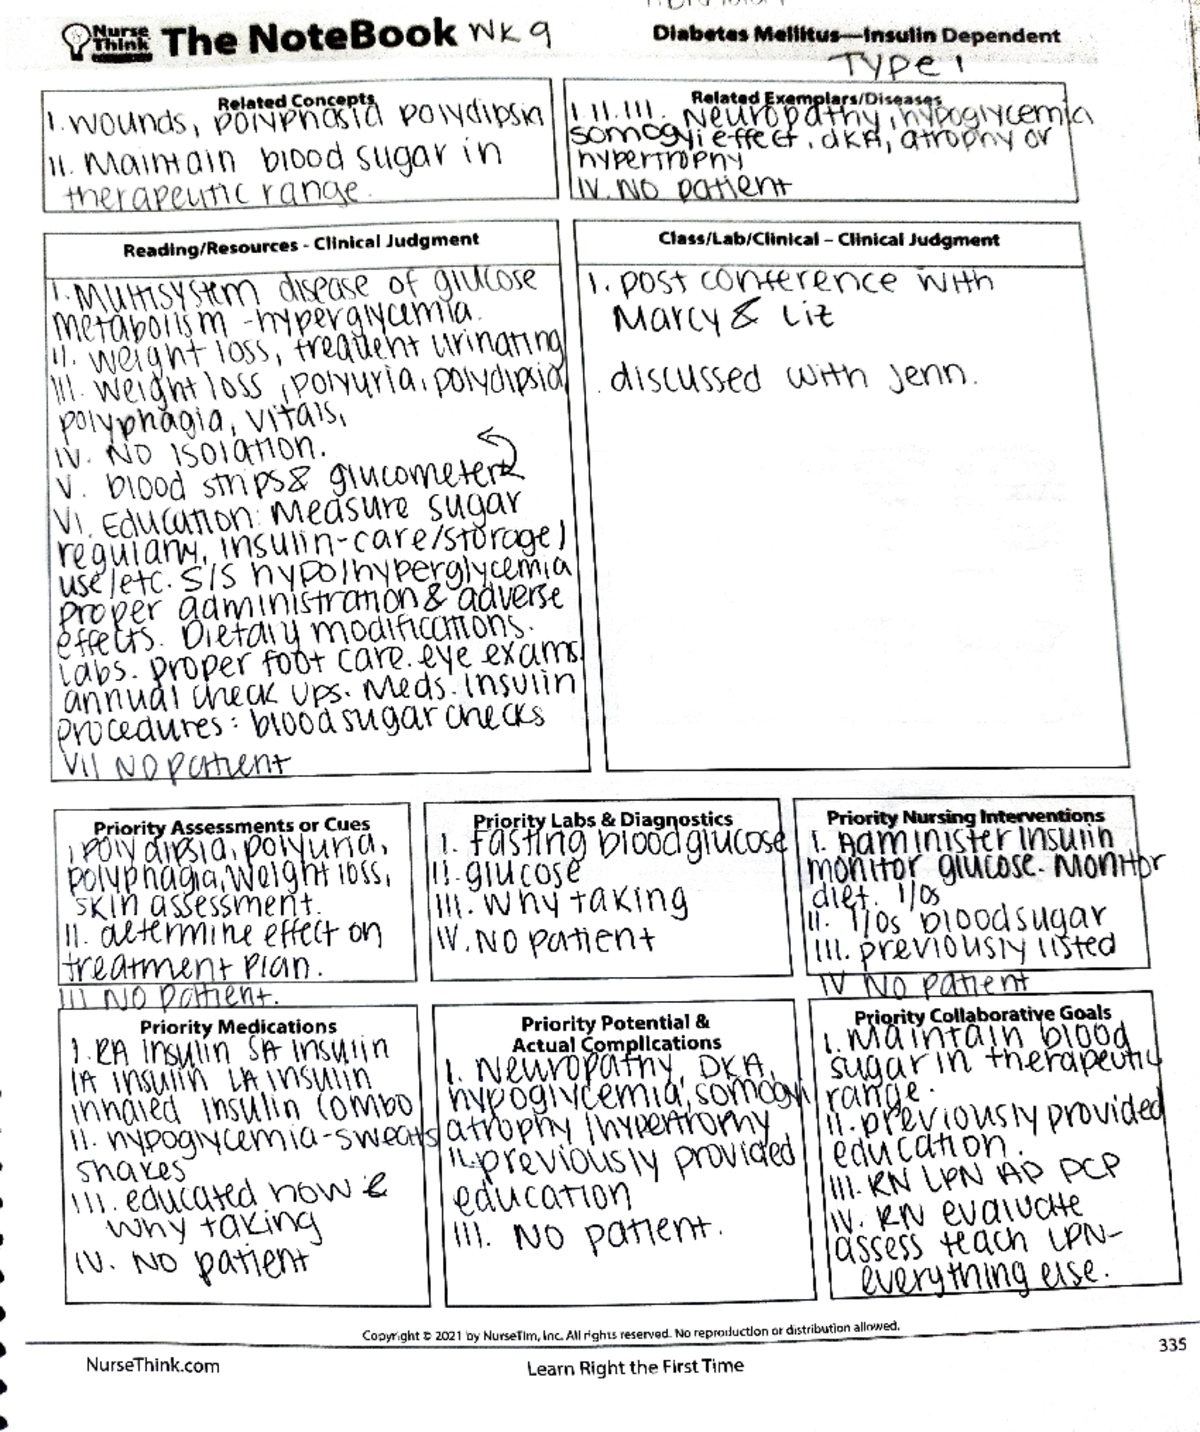 Nurse Think The NoteBook WK 9
Diabetes Mellitus—Insulin Dependent
Type 1
Related Concepts
I. wounds, polyphasia polydipsia
II. Maintain blood sugar in
therapeutic range.
Related Exemplars/Diseases
I. II. III. Neuropathy, hypoglycemia
somogyi effect, DKA, atrophy or
hypertrophy
IV. No patient
Reading/Resources - Clinical Judgment
I. Multisystem disease of glucose
metabolism - hyperglycemia.
II. weight loss, frequent urinating
III. weight loss, polyuria, polydipsia
polyphagia, vitals,
IV. No isolation.
V. blood strips & glucometer
VI. Education: Measure sugar
regularly, insulin-care/storage/
use/etc. S/S hypo/hyperglycemia
proper administration & adverse
effects. Dietary modifications.
Labs. proper foot care. eye exams
annual check ups. Meds. Insulin
procedures: blood sugar checks
VII No patient
Class/Lab/Clinical – Clinical Judgment
I. post conference with
Marcy & Liz
discussed with Jenn.
Priority Assessments or Cues
I polydipsia, polyuria,
polyphagia, weight loss,
skin assessment.
II. determine effect on
treatment plan.
III No patient.
Priority Labs & Diagnostics
I. Fasting blood glucose
II. glucose
III. Why taking
IV. No patient
Priority Nursing Interventions
I. Administer Insulin
monitor glucose. Monitor
diet. I/Os
II. I/Os blood sugar
III. previously listed
IV No patient
Priority Medications
I. RA insulin SA insulin
IA insulin LA insulin
inhaled insulin combo
II. hypoglycemia-sweats
shakes
III. educated how &
why taking
IV. No patient
Priority Potential &
Actual Complications
I. Neuropathy, DKA,
hypoglycemia, somogyi
atrophy/hypertrophy
II. previously provided
education
III. No patient.
Priority Collaborative Goals
I. Maintain blood
sugar in therapeutic
range.
II. previously provided
education.
III. RN LPN AP PCP
IV. RN evaluate
assess teach LPN-
everything else.
Copyright © 2021 by NurseTim, Inc. All rights reserved. No reproduction or distribution allowed.
335
NurseThink.com
Learn Right the First Time